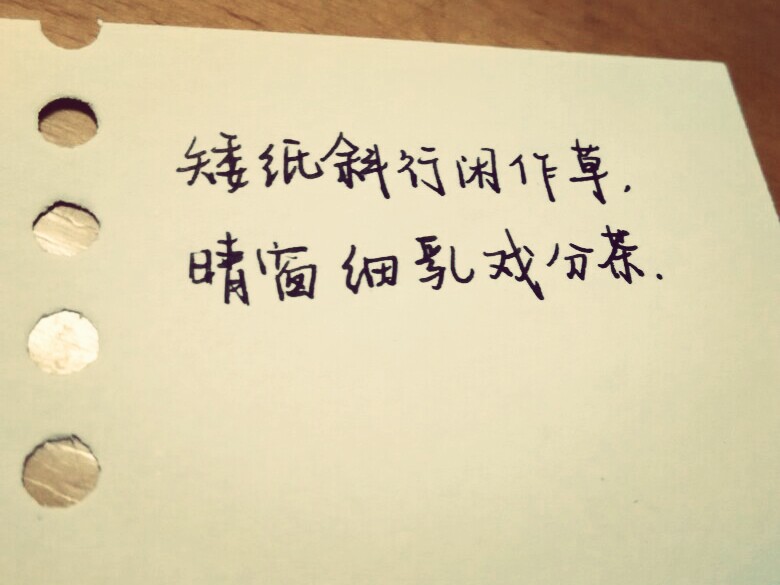 矮纸斜行闲作草.
晴窗细乳戏分茶.